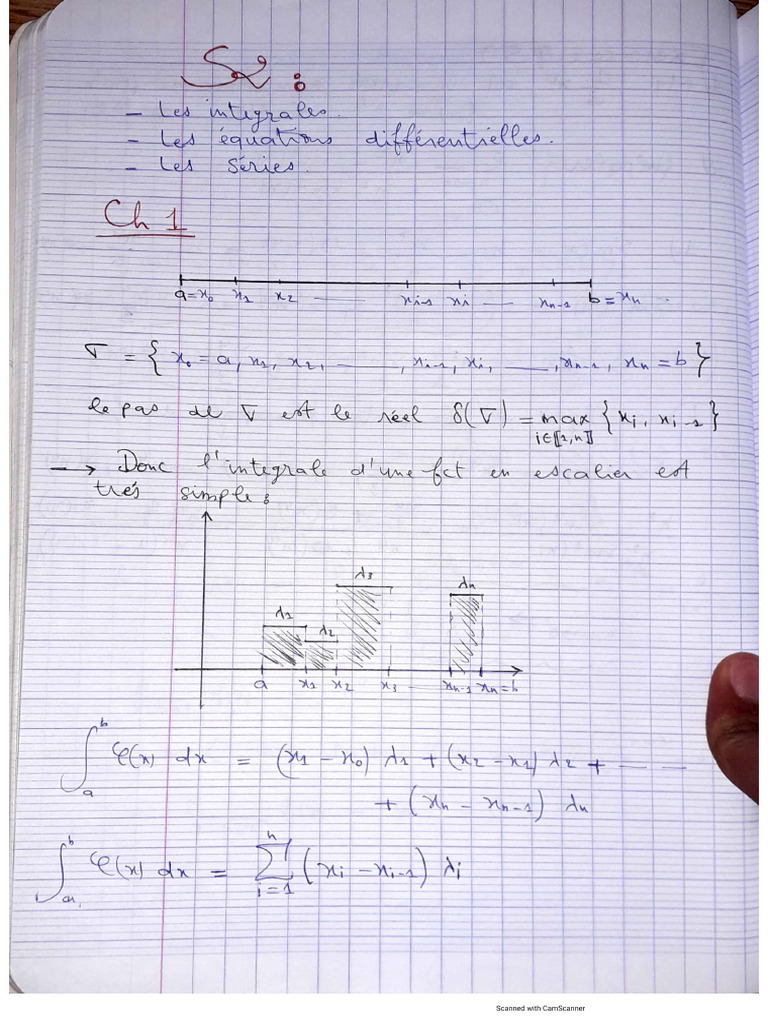 S2 :
- Les integrales.
- Les équations différentielles.
- Les séries.
Ch 1
a=x₀ x₁ x₂ —— xᵢ₋₁ xᵢ —— xₙ₋₁ b=xₙ .
σ = { x₀ = a, x₁, x₂, ——, xᵢ₋₁, xᵢ, ——, xₙ₋₁, xₙ = b }
le pas de σ est le réel δ(σ) = max {xᵢ, xᵢ₋₁}
i∈⟦1,n⟧
→ Donc l'integrale d'une fct en escalier est
trés simple :
λ₃
λₙ
λ₁
λ₂
a x₁ x₂ x₃ ... xₙ₋₁ xₙ=b
∫ₐᵇ φ(x) dx = (x₁ - x₀) λ₁ + (x₂ - x₁) λ₂ + — —
+ (xₙ - xₙ₋₁) λₙ
∫ₐᵇ φ(x) dx = ∑ᵢ₌₁ⁿ (xᵢ - xᵢ₋₁) λᵢ
Scanned with CamScanner